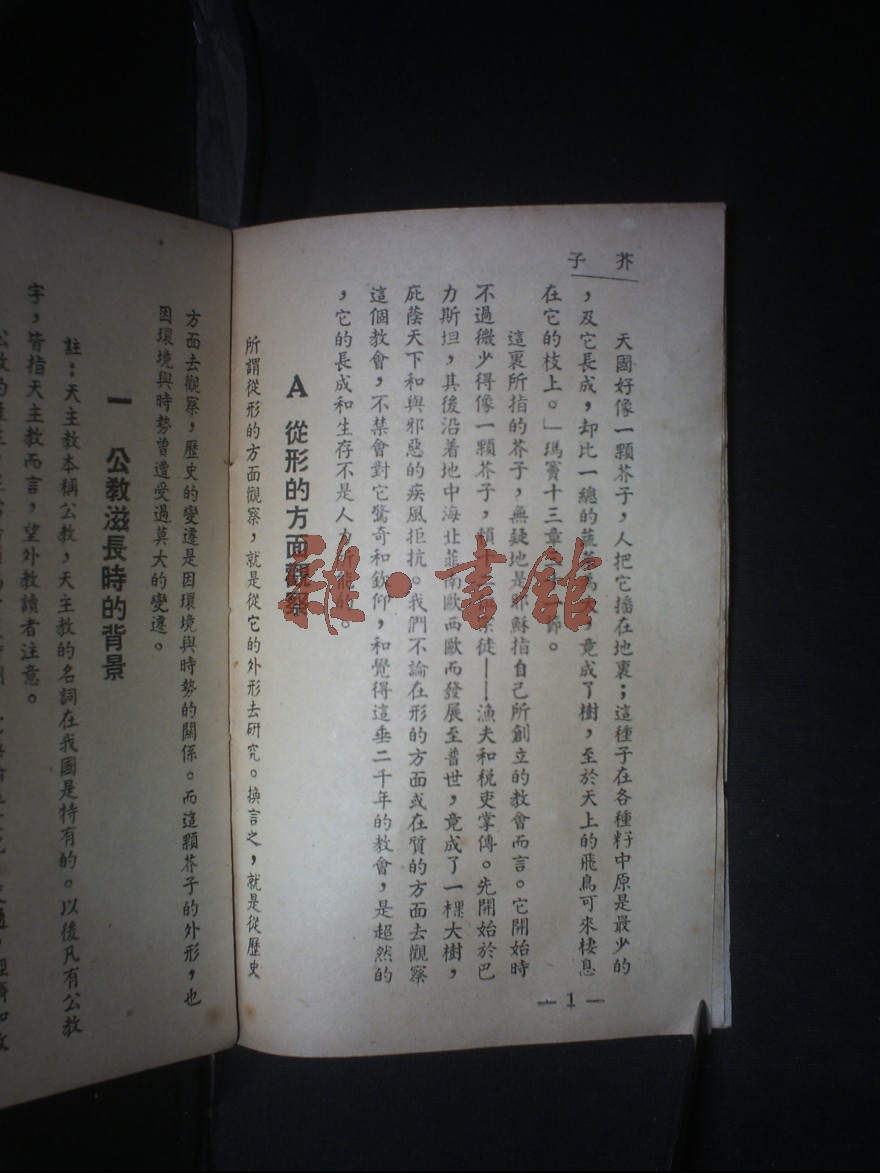 芥子
天國好像一顆芥子，人把它播在地裏；這種子在各種籽中原是最少的
，及它長成，却比一總的蔬菜，竟成了樹，至於天上的飛鳥可來棲息
在它的枝上。」瑪竇十三章節。
這裏所指的芥子，無疑地是耶穌指自己所創立的教會而言。它開始時
不過微少得像一顆芥子，賴十宗徒——漁夫和稅吏掌傳。先開始於巴
力斯坦，其後沿着地中海北菲南歐西歐而發展至普世，竟成了一棵大樹，
庇蔭天下和與邪惡的疾風拒抗。我們不論在形的方面或在質的方面去觀察
這個教會，不禁會對它驚奇和欽仰，和覺得這垂二千年的教會，是超然的
，它的長成和生存不是人力所能的。
A 從形的方面觀察
所謂從形的方面觀察，就是從它的外形去研究。換言之，就是從歷史
— 1 —
方面去觀察，歷史的變遷是因環境與時勢的關係。而這顆芥子的外形，也
因環境與時勢曾遭受過莫大的變遷。
一 公教滋長時的背景
註：天主教本稱公教，天主教的名詞在我國是特有的。以後凡有公教
字，皆指天主教而言，望外教讀者注意。
雜·書館